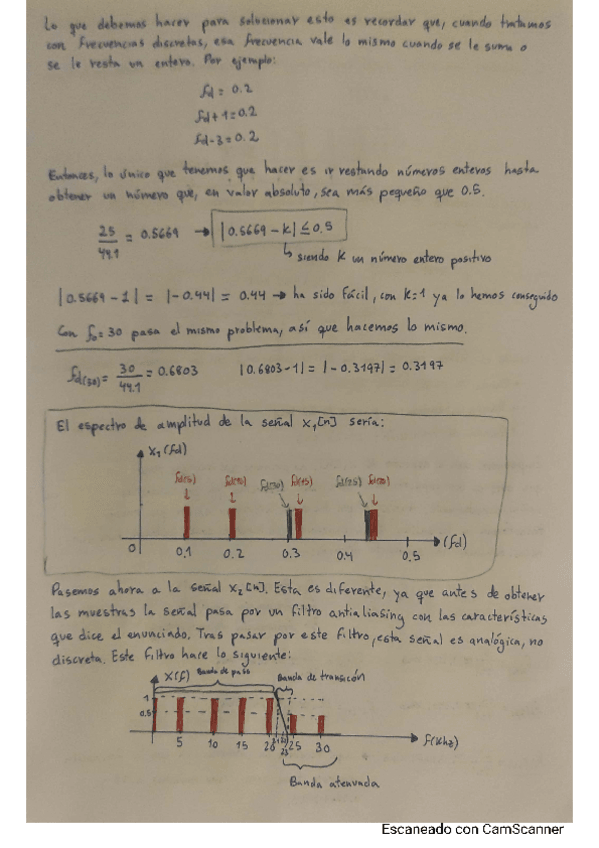 Lo que debemos hacer para solucionar esto es recordar que, cuando tratamos
con frecuencias discretas, esa frecuencia vale lo mismo cuando se le suma o
se le resta un entero. Por ejemplo:
fd = 0.2
fd+1=0.2
fd-3=0.2
Entonces, lo único que tenemos que hacer es ir restando números enteros hasta
obtener un número que, en valor absoluto, sea más pequeño que 0.5.
25/44.1 = 0.5669 → |0.5669 - k| ≤ 0.5
↳ siendo K un número entero positivo
|0.5669-1| = |-0.44| = 0.44 → ha sido fácil, con K=1 ya lo hemos conseguido
Con fo=30 pasa el mismo problema, así que hacemos lo mismo.
fd(30) = 30/44.1 = 0.6803 |0.6803-1| = |-0.3197| = 0.3197
El espectro de amplitud de la señal x1[n] sería:
X1(fd)
fd(5) fd(10) fd(30) fd(15) fd(25) fd(20)
0 0.1 0.2 0.3 0.4 0.5 (fd)
Pasemos ahora a la señal x2[n]. Esta es diferente, ya que antes de obtener
las muestras la señal pasa por un filtro antialiasing con las características
que dice el enunciado. Tras pasar por este filtro, esta señal es analógica, no
discreta. Este filtro hace lo siguiente:
X(f) Banda de paso Banda de transición
1
0.5
5 10 15 20 25 30 f(Khz)
Banda atenuada
Escaneado con CamScanner